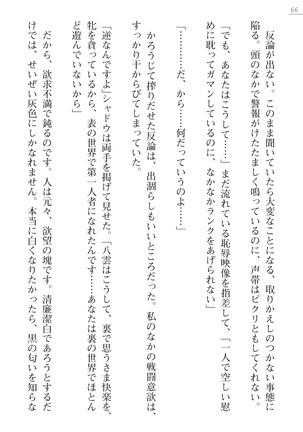 66
反論が出ない。このまま聞いていたら大変なことになる、取りかえしのつかない事態に
陥る。頭のなかで警報がけたたましく鳴っているのに、声帯はピクリともしてくれない。
「でも、あなたはこうして……」まだ流れている恥辱映像を指差して、「一人で空しい慰
めに耽ってガマンしているのに、なかなかランクをあげられない」
「…………だ、から……何だっていうのよ……」
かろうじて搾りだせた反論は、出涸らしもいいところだった。私のなかの戦闘意欲は、
すっかり干からびてしまっていた。
「逆なんですよ」シャドウは両手を掲げて見せた。「八雲はこうして、裏で思うさま快楽を、
牝を貪っているから、表の世界で第一人者になれたんです……あなたは裏の世界でほとん
ど遊んでいないから」
だから、欲求不満で鈍るのです。人は元々、欲望の塊です。清廉潔白であろうとするだ
けでは、せいぜい灰色にしかなれません。本当に白くなりたかったら、黒の匂いを知らな